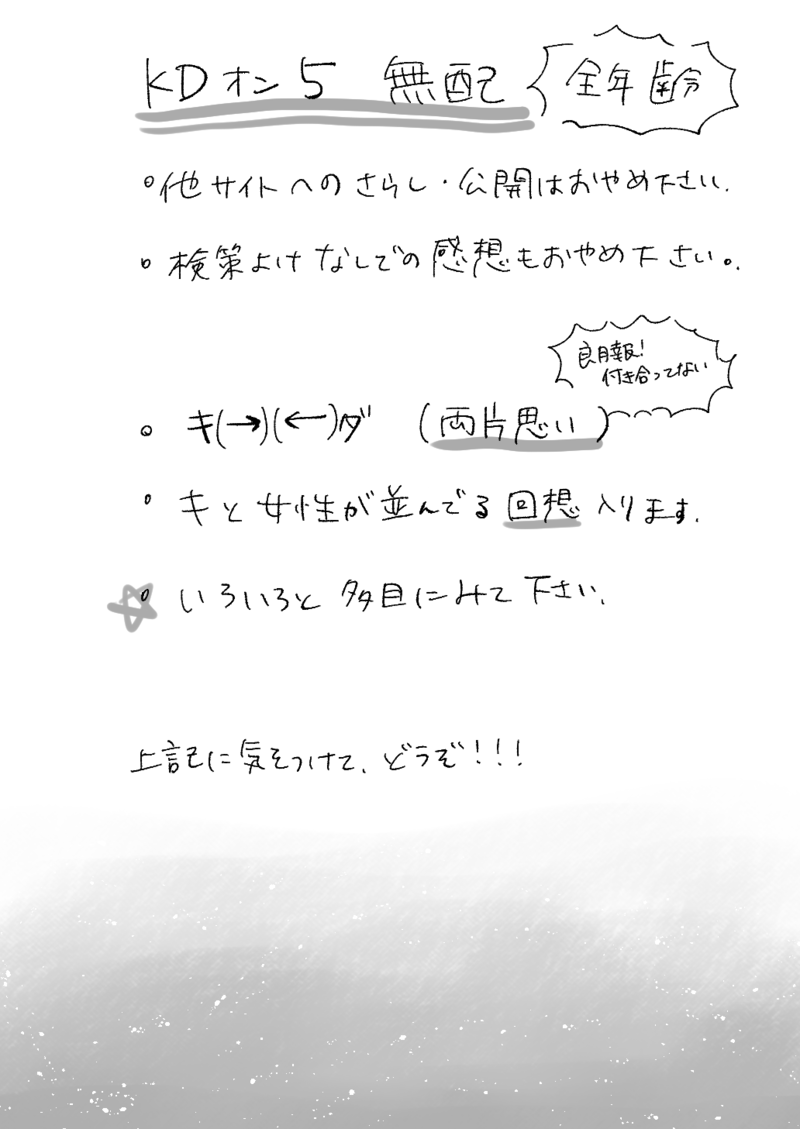 KDオン5 無配
全年齢
・他サイトへのさらし・公開はおやめ下さい.
・検策よけなしでの感想もおやめ下さい。.
良月報!
付き合ってない
・キ(→)(←)ダ (両片思い)
・キと女性が並んでる回想入ります.
・いろいろと多目にみて下さい.
上記に気をつけて、どうぞ!!!